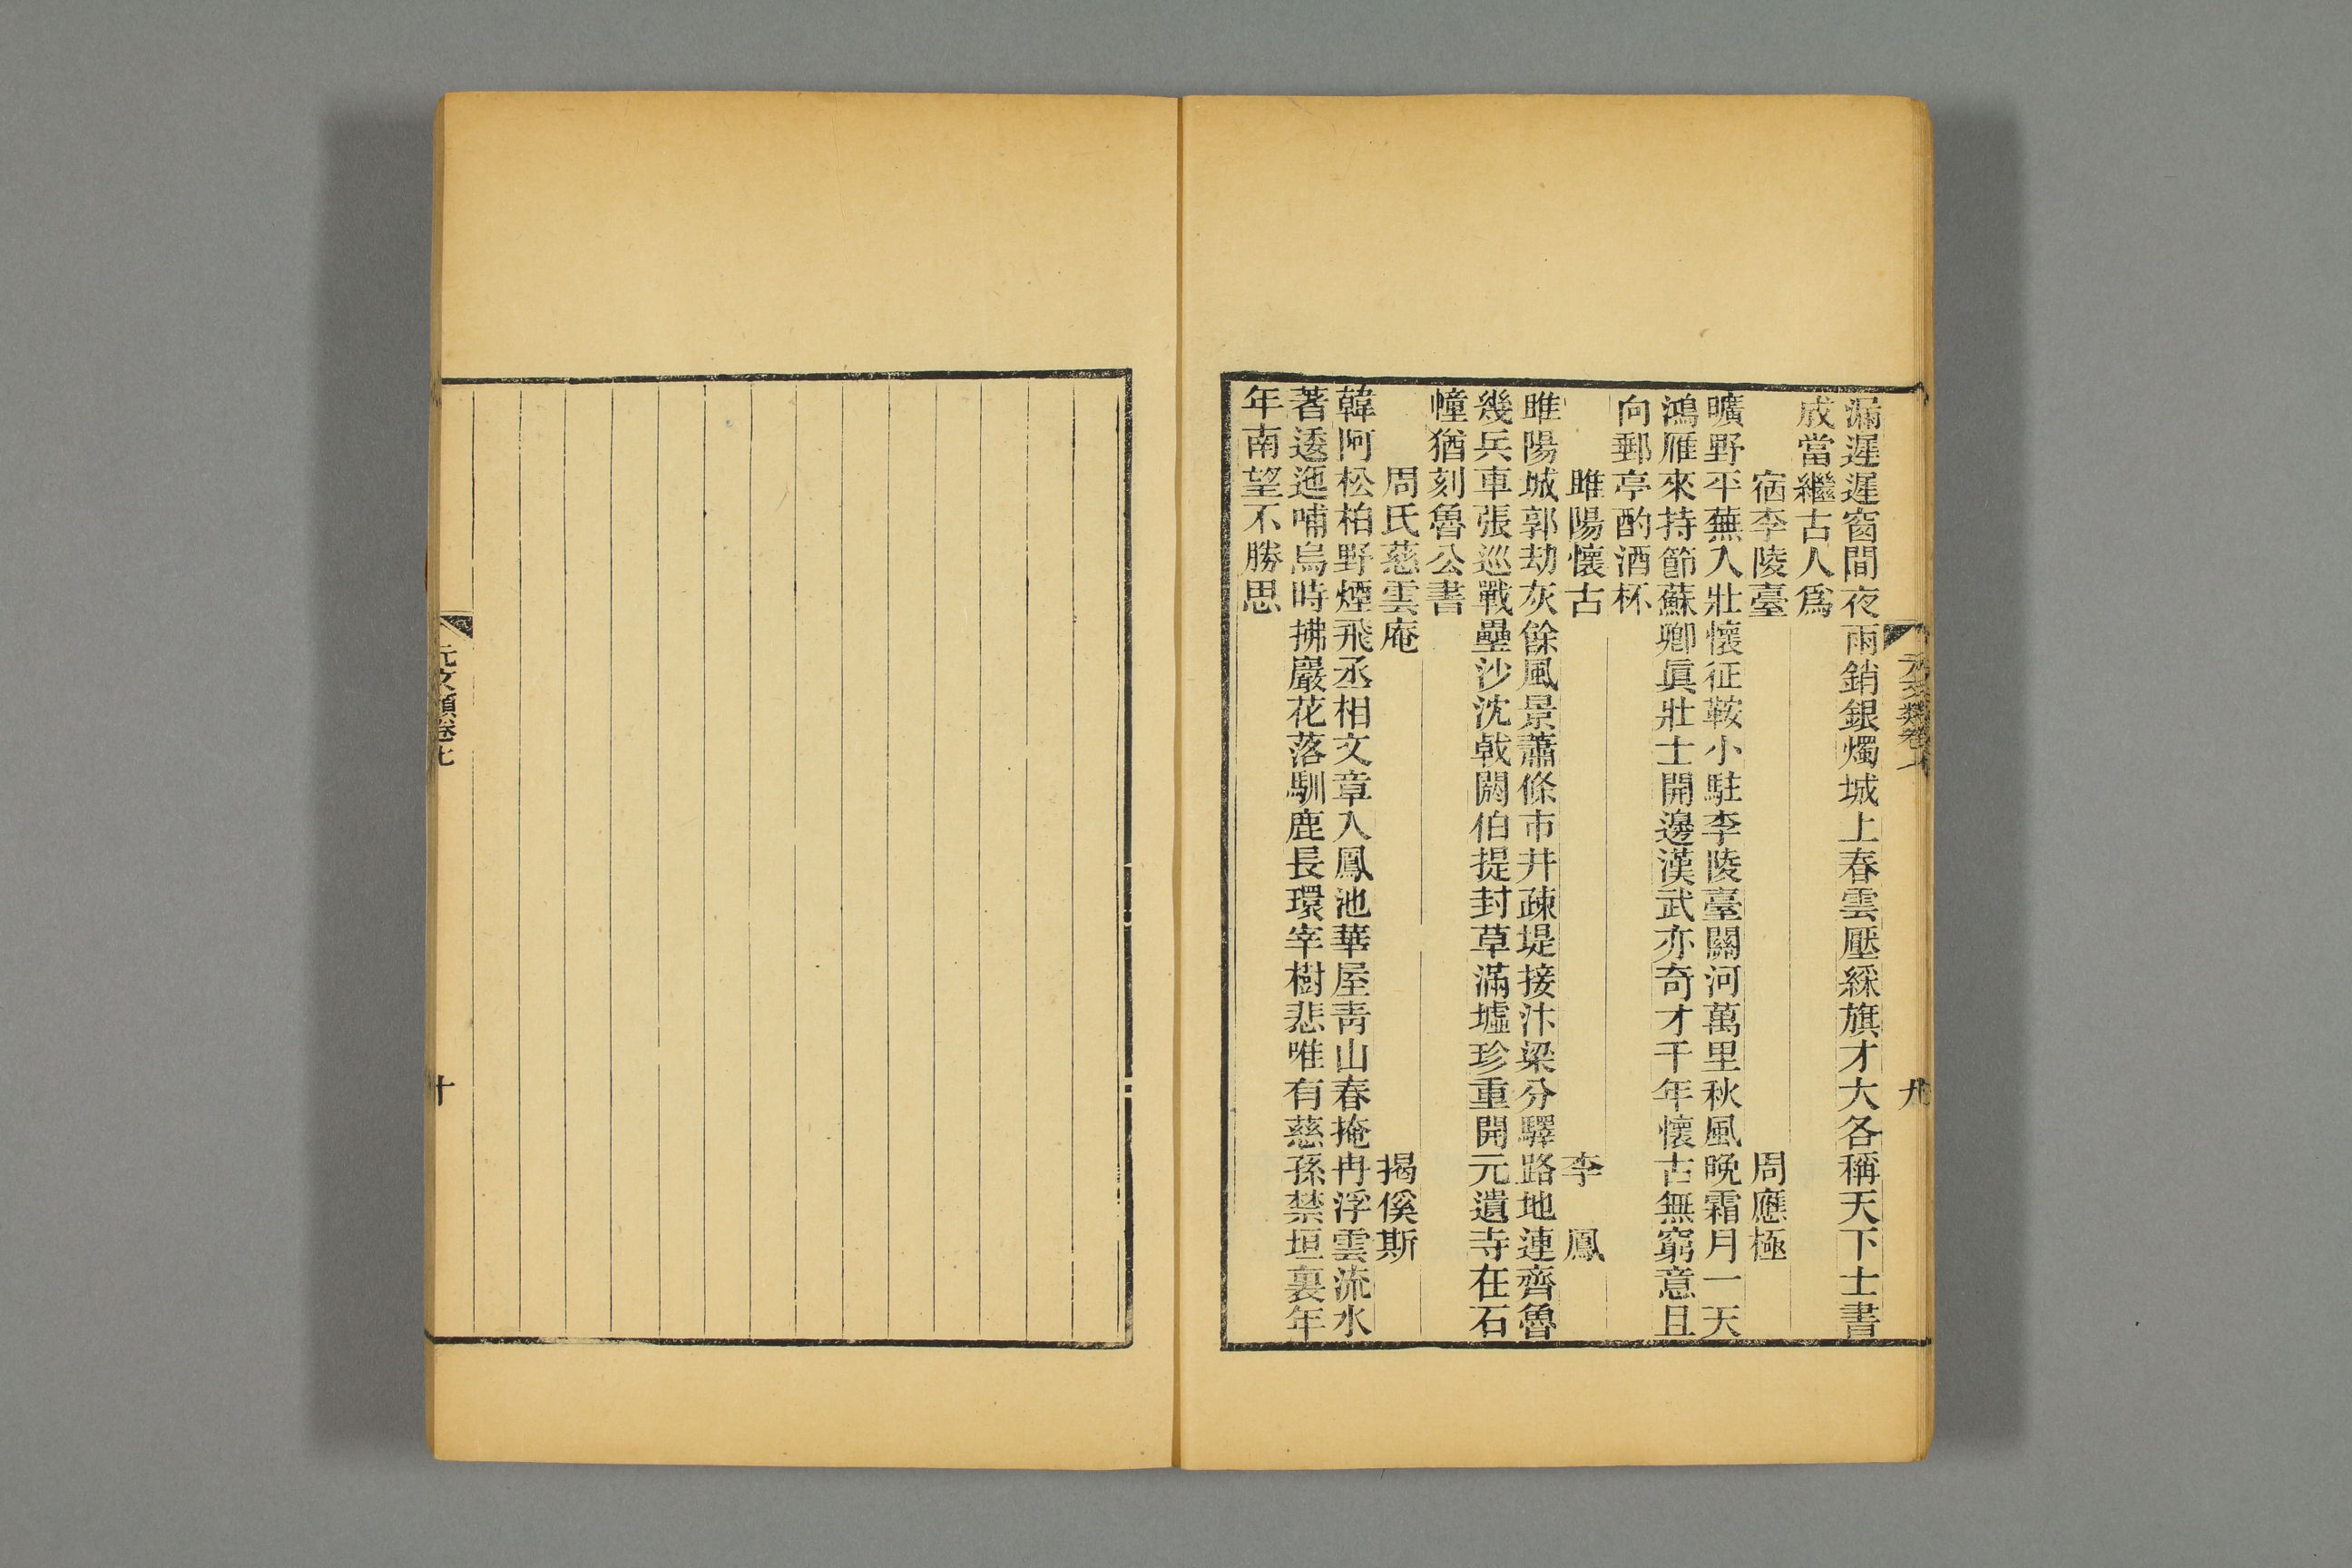 漏遲遲窗間夜雨銷銀燭城上春雲壓綵旗才大各稱天下士書
成當繼古人爲
宿李陵臺 周應極
曠野平蕪入壯懷征鞍小駐李陵臺關河萬里秋風晚霜月一天
鴻雁來持節蘇卿眞壯士開邊漢武亦奇才千年懷古無窮意且
向郵亭酌酒杯
睢陽懷古 李 鳳
睢陽城郭劫灰餘風景蕭條市井疎堤接汴梁分驛路地連齊魯
幾兵車張巡戰壘沙沈戟閼伯提封草滿墟珍重開元遺寺在石
幢猶刻魯公書
周氏慈雲庵 揭傒斯
韓阿松柏野煙飛丞相文章入鳳池華屋靑山春掩冉浮雲流水
著逶迤哺烏時拂巖花落馴鹿長環宰樹悲唯有慈孫禁垣裏年
年南望不勝思
元文類卷七
十